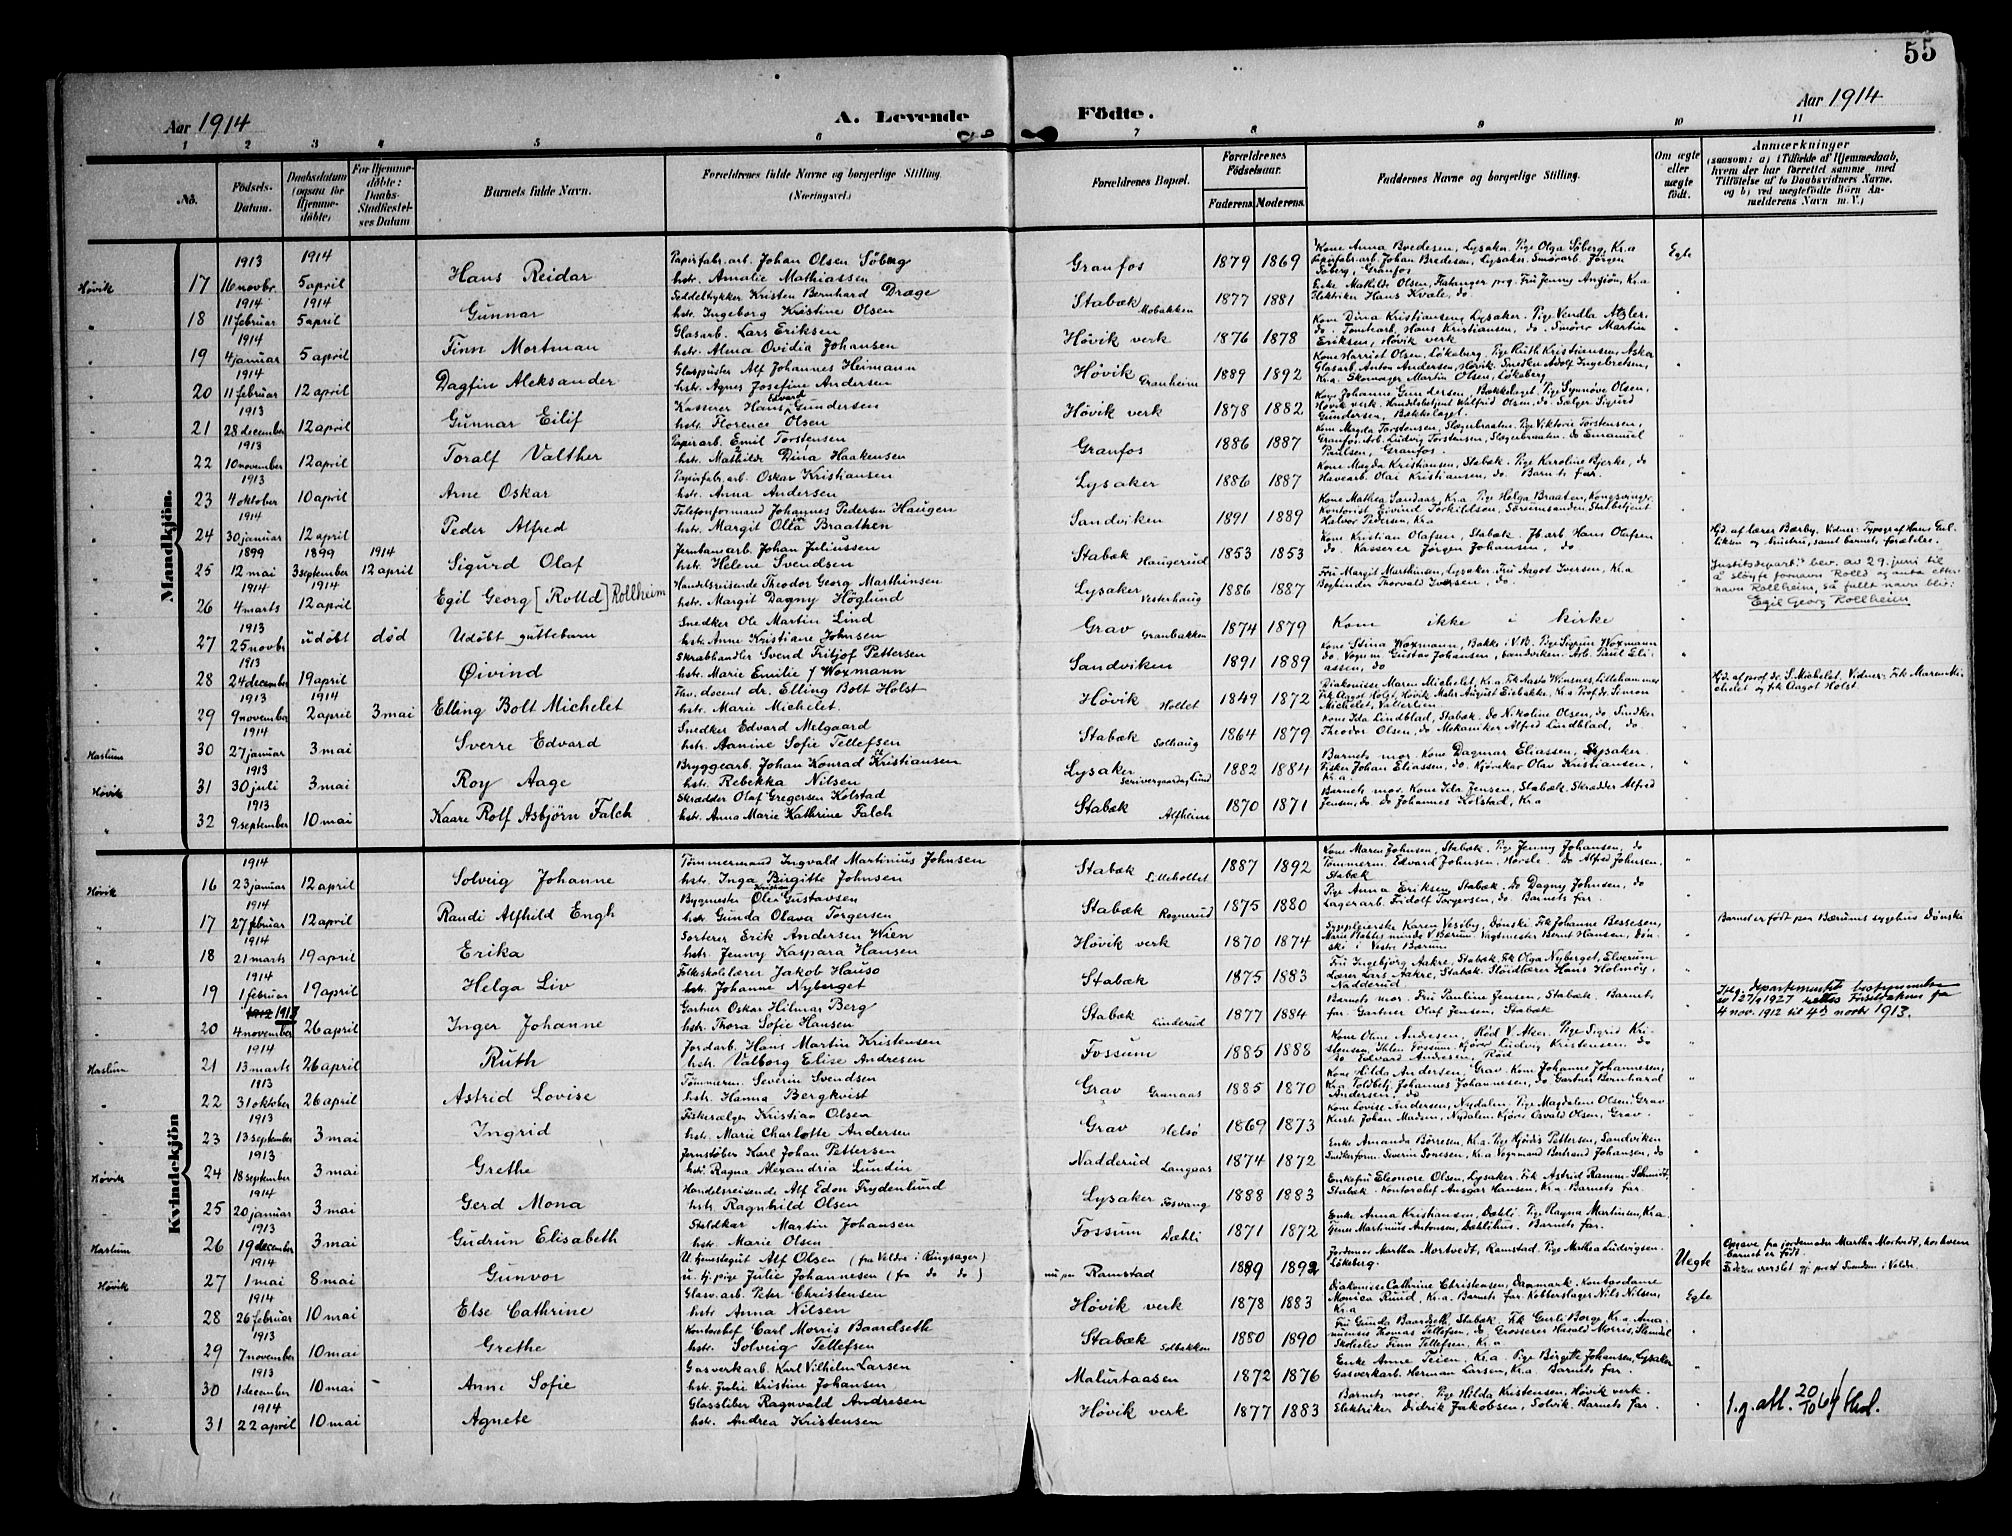 55
Aar 1914 A. Levende Födte. Aar 1914
1 2 3 4 5 6 7 8 9 10 11
No. Födsels-Datum. Daabsdatum (ogsaa for Hjemmedöbte) For Hjemmedöbte: Daabs-Stadfæstelses Datum Barnets fulde Navn. Forældrenes fulde Navne og borgerlige Stilling. (Næringsvei.) Forældrenes Bopæl. Forældrenes Födselsaar. Faderens. Moderens. Faddernes Navne og borgerlige Stilling. Om ægte eller uægte födt. Anmærkninger
(saasom: a) i Tilfælde af Hjemmedaab, hvem der har forrettet samme med Tilföielse af to Daabsvidners Navne, og b) ved uægtefödte Börn Anmelderens Navn m. V.)
Mandkjön.
1913 1914 Papirfabr.arb. Johan Olsen Söberg
Høvik 17 16 novbr. 5 april Hans Reidar hstr. Amalie Mathiassen Granfos 1879 1869 Kone Anna Bredesen, Lysaker. Pige Olga Söberg, Kr.a Papirfabr.arb. Johan Bredesen, Lysaker. Smörarb. Jörgen Söberg, Granfos Egte
1914 1914 Seddeltrykker Kristen Bernhard Dræge
" 18 11 februar 5 april Gunnar hstr. Ingeborg Kristine Olsen Stabæk Mobakken 1877 1881 Enke Mathilde Olsen, Elektriker Hans Kvale, do
1914 Glasarb. Lars Eriksen
" 19 4 januar 5 april Finn Mortman hstr. Alma Ovidia Johansen Høvik verk 1876 1878 Kone Dina Kristiansen, Lysaker. Eriksen, Høvik verk
1914 Glaspuster Alf Johannes Heimann
20 11 februar 12 april Dagfin Aleksander hstr. Agnes Josefine Andersen Høvik Granheim 1889 1892 Kone Harriet Olsen, Løkeberg, Pige Ruth Kristiansen, Asker Glasarb. Anton Andersen, Høvik. Snedker Adolf Ingebretsen, Kr.a. Skomager Martin Olsen, Løkeberg
1913 Kasserer Hans Edvard Gundersen
21 28 december 12 april Gunnar Eilif hstr. Florence Olsen Høvik verk 1878 1882 Gundersen, Bækkelaget.
1913 Papirarb. Emil Torstensen
22 10 november 12 april Toralf Valther hstr. Mathilde Dina Haakensen Granfos 1886 1887 Kone Magda Torstensen, Slægerbraaten. Pige Viktoria Torstensen, Granfos. Arb. Ludvig Torstensen, Slægerbraaten. do Emanuel Paulsen, Granfos.
1913 Papirfabr.arb. Oskar Kristiansen
23 4 oktober 10 april Arne Oskar hstr. Anna Andersen Lysaker 1886 1887 Kone Magda Kristiansen, Stabæk. Pige Karoline Bjerke, do Havearb. Olai Kristiansen, do. Barnets far.
1914 Telefonformand Johannes Pedersen Haugen
24 30 januar 12 april Peder Alfred hstr. Margit Olea Braathen Sandviken 1891 1889 Kone Mathea Sandaas, Kr.a Pige Helga Braaten, Kongsvinger Kontorist Eivind Torkildsen, Halvor Pedersen, Kr.a
1899 1899 1914 Jernbanearb. Johan Juliussen
25 12 mai 3 september 12 april Sigurd Olaf hstr. Helene Svendsen Stabæk Haugerud 1853 1853 Kone Kristian Olafsen, Stabæk. Jb.arb. Hans Olafsen do. Kasserer Jörgen Johansen, do Hjd. af lærer Bærby. Vidner: Typograf Hans Gulliksen og hustru, samt barnets forældre.
1914 1914 Handelsreisende Theodor Georg Marthinsen
26 4 marts 12 april Egil Georg [Rolld] Rollheim hstr. Margit Dagny Höglund Lysaker Vesterhaug 1886 1887 Fru Margit Marthinsen, Lysaker. Fru Aagot Iversen, Kr.a Bogbinder Thorvald Iversen, do. Justitsdepart: bev. av 29. juni til å sløyfe fornavn Rolld og anta etternavn Rollheim, så fullt navn blir: Egil Georg Rollheim
1913 Snedker Ole Martin Lind
27 25 novbr udöbt död Udöbt guttebarn hstr. Anne Kristiane Johnsen Grav Granbakken 1874 1879 Kom ikke i kirke
1913 Skrabhandler Svend Fritjof Pettersen
28 24 december 19 april Øivind hstr. Marie Emilie f Woxmann Sandviken 1891 1889 Kone Stina Woxmann, Bakke i V.B. Pige Sigrun Woxmann do. Vognm. Gustav Johansen, Sandviken. Arb. Paul Eliassen, do
1913 1914 Fhv. docent dr. Elling Bolt Holst
29 9 november 2 april 3 mai Elling Bolt Michelet hstr. Marie Michelet. Høvik Holtet 1849 1872 Diakonisse Maren Michelet, Kr.a Frk Aasta Winsnes, Lillehammer Frk Aagot Holst, Høvik. Maler August Eiebakke, Kr.a Prof. dr. Simon Michelet, Vatterlien Hjd. af prof. dr. S. Michelet. Vidner: Frk Maren Michelet og frk Aagot Holst.
1914 Snedker Edvard Melgaard
Haslum 30 27 januar 3 mai Sverre Edvard hstr. Aanine Sofie Tellefsen Stabæk Solhaug 1864 1879 Kone Ida Lindblad, Stabæk. do Nikoline Olsen, do. Snedker Theodor Olsen, do. Mekaniker Alfred Lindblad, do
1913 Bryggearb. Johan Konrad Kristiansen
Høvik 31 30 juli 3 mai Roy Aage hstr. Rebekka Nilsen Lysaker 1882 1884 Barnets mor. Kone Dagmar Eliassen, Lysaker Fisker Johan Eliassen, do. Kjörekar Olav Kristiansen, Kr.a
1913 Skrædder Olaf Gregersen Kolstad
" 32 9 september 10 mai Kaare Rolf Asbjörn Falch hstr. Anna Marie Kathrine Falch Stabæk Alfheim 1870 1871 Barnets mor. Kone Ida Jensen, Stabæk. Skrædder Alfred Jensen, do. do Johannes Kolstad, Kr.a
Kvindekjön
1914 Tömmermand Ingvald Martinius Johnsen
Høvik 16 23 januar 12 april Solveig Johanne hstr. Inga Birgitte Johnsen Stabæk Lilleholtet 1887 1892 Kone Maren Johnsen, Stabæk. Pige Jenny Johansen, do Tömmerm. Edvard Johnsen, do Alfred Johnsen, Stabæk
1914 Bygmester Olav Kristian Gustavsen
" 17 27 februar 12 april Randi Alfhild Engh hstr. Gunda Olava Torgersen Stabæk Ragnerud 1875 1880 Pige Anna Eriksen, Stabæk. do Dagny Johnsen, do Lagerarb. Fridolf Torgersen, do. Barnets far. Barnet er født paa Bærums sygehus Dønske
1914 Sorterer Erik Andersen Wien
" 18 21 marts 19 april Erika hstr. Jenny Kaspara Hansen Høvik verk 1870 1874 Sygepleierske Karen Vesöby, Dønski. Frk Johanne Bessesen, Marie Plates minde V. Bærum. Vagtmester Bernt Hansen, Dønski i Vestre Bærum
1914 Folkeskolelærer Jakob Hauso
" 19 1 februar 19 april Helga Liv hstr. Johanne Nyberget Stabæk 1875 1883 Fru Ingebjörg Aakre, Stabæk. Frk Olga Nyberget, Elverum Lærer Lars Aakre, Stabæk. Slöidlærer Hans Holmöy, Nadderud
1912 1913 Gartner Oskar Hilmar Berg
20 4 november 26 april Inger Johanne hstr. Thora Sofie Hansen Stabæk Linderud 1877 1884 Barnets mor. Fru Pauline Jensen, Stabæk. Barnets far. Gartner Olaf Jensen, Stabæk Iflg. departementets bestemmelse av 1927 rettes Födselsdatum fra 4 nov. 1912 til 4 novbr 1913.
1914 Jordarb. Hans Martin Kristensen
Haslum 21 13 marts 26 april Ruth hstr. Valborg Elise Andresen Fossum 1885 1888 Kone Oline Andresen, Röd V. Aker. Pige Sigrid Kristensen, Fossum. Kjörer Ludvig Kristensen, do do Edvard Andresen, Röd
1913 Tömmerm. Severin Svendsen
" 22 31 oktober 26 april Astrid Lovise hstr. Hanna Bergkvist Grav Granaas 1885 1870 Kone Hilda Andersen, Grav. Kone Johanne Johannesen, Kr.a Toldbetj. Johannes Johannesen, do Gartner Bernhard Andersen, do
1913 Fiskesælger Kristian Olsen
" 23 13 september 3 mai Ingrid hstr. Marie Charlotte Andersen Grav Helsø 1869 1873 Kone Lovise Andersen, Nydalen. Pige Magdalene Olsen, Grav Kusk Johan Madsen, Nydalen. Kjörer Osvald Olsen, Grav.
1913 Jernstöber Karl Johan Pettersen
Høvik 24 18 september 3 mai Grethe hstr. Ragna Alexandria Lundin Nadderud Langaas 1874 1872 Enke Amanda Börresen, Kr.a. Pige Hjördis Pettersen, Sandviken Snedkerform. Severin Sönesen, Kr.a Vognmand Bertrand Johansen, do
1914 Handelsreisende Alf Edon Frydenlund
25 20 januar 3 mai Gerd Mona hstr. Ragnhild Olsen Lysaker Fosvang 1888 1883 Enkefru Eleonore Olsen, Lysaker. Frk Astrid Ramm-Schmidt, Stabæk. Kontorchef Ansgar Hansen, Kr.a. Barnets far.
1913 Staldkar Martin Johansen
Haslum 26 19 december 3 mai Gudrun Elisabeth hstr. Marie Olsen Fossum Dæhli 1871 1872 Enke Anna Kristiansen, Dælihus. Pige Ragna Martinsen, Kr.a. Martinius Antonsen, Dælihus. Barnets far.
1914 U. tjenestegut Alf Olsen (fra Veldre i Ringsager)
Høvik 27 1 mai 8 mai Gunvor u. tj.pige Julie Johannesen (fra do do) nu paa Ramstad 1889 1892 Jordmor Martha Mortvedt, Ramstad. Pige Mathea Ludvigsen. Løkeberg. Uegte Opgave fra jordemoder Martha Mortvedt, hos hvem barnet er födt. Faderen varslet gj. prest Sunden i Veldre.
1914 Glasv.arb. Peter Christensen
28 26 februar 10 mai Else Cathrine hstr. Anna Nilsen Høvik verk 1878 1883 Diakonisse Cathrine Christensen, Danmark. Kontordame Monica Ruud, Kr.a. Barnets far. Kobberslager Nils Nilsen, Kr.a Egte
1913 Kontorchef Carl Morris Baardseth
29 7 november 10 mai Grethe hstr. Solveig Tellefsen Stabæk Solbakken 1880 1890 Fru Gunda Baardseth, Stabæk. Frk Gurli Borg, Kr.a. Amanuensis Thomas Tellefsen, do. Grosserer Harald Morris, Slemdal Skoleelev Finn Tellefsen, Kr.a
1913 Gasverkarb. Karl Vilhelm Larsen
30 1 december 10 mai Anne Sofie hstr. Julie Kristine Johansen Malurtaasen 1872 1876 Enke Anne Teien, Kr.a. Pige Birgitte Johansen, Lysaker Gasverkarb. Herman Larsen, Kr.a. Barnets far.
1914 Glassliber Ragnvald Andresen
31 22 april 10 mai Agnete hstr. Andrea Kristensen Høvik verk 1877 1883 Barnets mor. Pige Hilda Kristensen, Høvik verk. Elektriker Didrik Jakobsen, Solvik. Barnets far. 1.g. att. 20/10 64